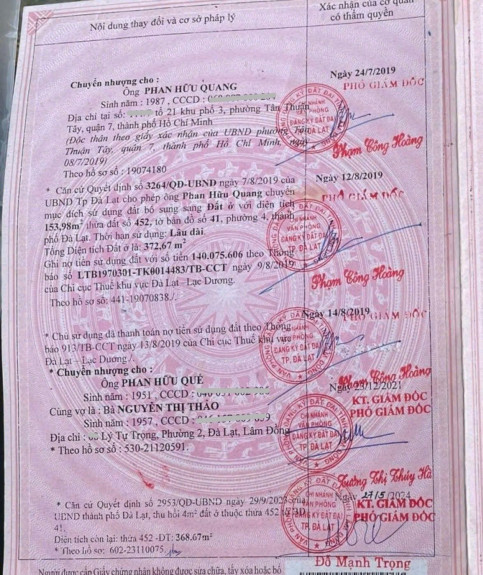 Nội dung thay đổi và cơ sở pháp lý
Xác nhận của cơ quan
có thẩm quyền
Chuyển nhượng cho :
Ông PHAN HỮU QUANG
Sinh năm : 1987 , CCCD :
Địa chỉ tại số: tổ 21 khu phố 3, phường Tân Thuận
Tây, quận 7, thành phố Hồ Chí Minh
(Độc thân theo giấy xác nhận của UBND phường Tân
Thuận Tây, quận 7, thành phố Hồ Chí Minh, ngày
08/7/2019)
Theo hồ sơ số : 19074180
Ngày 24/7/2019
PHÓ GIÁM ĐỐC
Phạm Công Hoàng
* Căn cứ Quyết định số 3264/QD-UBND ngày 7/8/2019 của
UBND Tp Đà Lạt cho phép ông Phan Hữu Quang chuyển
mục đích sử dụng đất bổ sung sang Đất ở với diện tích
153,98m² thửa đất số 452, tờ bản đồ số 41, phường 4, thành
phố Đà Lạt. Thời hạn sử dụng: Lâu dài.
Tổng Diện tích Đất ở là: 372,67 m²
Ghi nợ tiền sử dụng đất với số tiền 140.075.606 theo Thông
báo số LTB1970301-TK0014483/TB-CCT ngày 9/8/2019
của Chi cục Thuế khu vực Đà Lạt - Lạc Dương.
Theo hồ sơ số: 441-19070838./.
Ngày 12/8/2019
PHÓ GIÁM ĐỐC
Phạm Công Hoàng
* Chủ sử dụng đã thanh toán nợ tiền sử dụng đất theo Thông
báo 913/TB-CCT ngày 13/8/2019 của Chi cục Thuế khu vực
Đà Lạt – Lạc Dương./.
Ngày 14/8/2019
PHÓ GIÁM ĐỐC
Phạm Công Hoàng
* Chuyển nhượng cho :
Ông PHAN HỮU QUẾ
Sinh năm : 1951 , CCCD :
Cùng vợ là : Bà NGUYỄN THỊ THẢO
Sinh năm : 1957 , CCCD :
Địa chỉ : Lý Tự Trọng, Phường 2, Đà Lạt, Lâm Đồng
* Theo hồ sơ: 530-21120591.
Ngày 23/12/2021
KT. GIÁM ĐỐC
PHÓ GIÁM ĐỐC
Trương Thị Thúy Hà
* Căn cứ Quyết định số 2953/QD-UBND ngày 29/9/2023 của
UBND thành phố Đà Lạt, thu hồi 4m² đất ở thuộc thửa 452 tờ BĐ
41.
Diện tích còn lại: thửa 452 -DT: 368.67m²
* Theo hồ sơ: 602-23110075.
Ngày 27/5/2024
KT. GIÁM ĐỐC
PHÓ GIÁM ĐỐC
Đỗ Mạnh Trọng
Người được cấp Giấy chứng nhận không được sửa chữa, tẩy xóa hoặc bổ